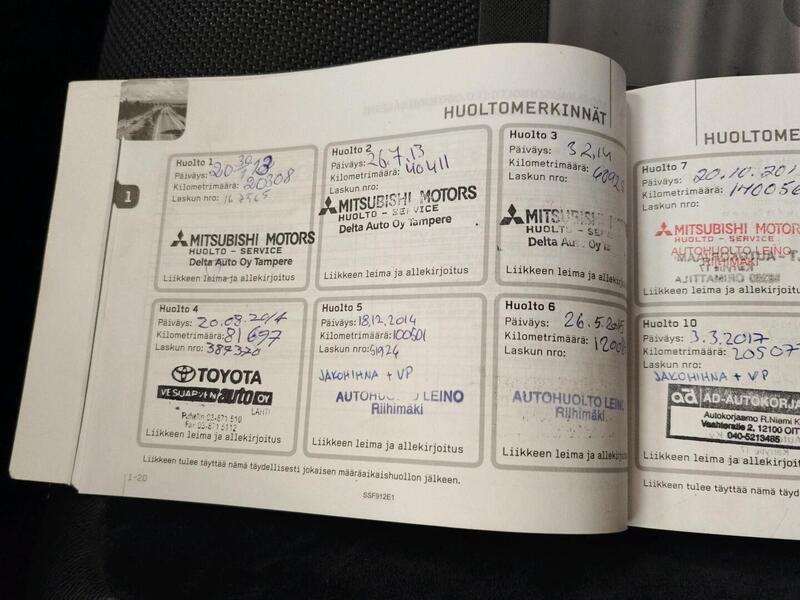 HUOLTOMERKINNÄT
Huolto 1
Päiväys:
Kilometrimäärä: 20308
Laskun nro: 167565
MITSUBISHI MOTORS
HUOLTO - SERVICE
Delta Auto Oy Tampere
Liikkeen leima ja allekirjoitus
Huolto 2
Päiväys: 26.7.13
Kilometrimäärä: 40411
Laskun nro:
MITSUBISHI MOTORS
HUOLTO - SERVICE
Delta Auto Oy Tampere
Liikkeen leima ja allekirjoitus
Huolto 3
Päiväys: 3.2.14
Kilometrimäärä:
Laskun nro:
MITSUBISHI MOTORS
HUOLTO - SERVICE
Delta Auto Oy
Liikkeen leima ja allekirjoitus
Huolto 4
Päiväys: 20.08.2014
Kilometrimäärä: 81697
Laskun nro: 384370
TOYOTA
VESIJÄRVEN auto OY
LAHTI
Puhelin 03-871 510
Fax 03-871 5112
Liikkeen leima ja allekirjoitus
Huolto 5
Päiväys: 18.12.2014
Kilometrimäärä: 100501
Laskun nro: 51924
JAKOHIHNA + VP
AUTOHUOLTO LEINO
Riihimäki
Liikkeen leima ja allekirjoitus
Huolto 6
Päiväys: 26.5.2015
Kilometrimäärä:
Laskun nro:
AUTOHUOLTO LEINO
Riihimäki
Liikkeen leima ja allekirjoitus
Liikkeen tulee täyttää nämä täydellisesti jokaisen määräaikaishuollon jälkeen.
1
1-20
SSF912E1
HUOLTOME
Huolto 7
Päiväys: 20.10.201
Kilometrimäärä: 140056
Laskun nro:
MITSUBISHI MOTOR
HUOLTO - SERVICE
AUTOHUOLTO LEINO
Riihimäki
Liikkeen leima ja allekirjoitus
Huolto 10
Päiväys: 3.3.2017
Kilometrimäärä: 20507
Laskun nro:
JAKOHIHNA + VP
ad AD-AUTOKORJA
Autokorjaamo R.Niemi K
Vaahteratie 2, 12100 OIT
040-5213485
Liikkeen leima ja allekirjoitus
Liikkeen tulee täyttää nämä täyd